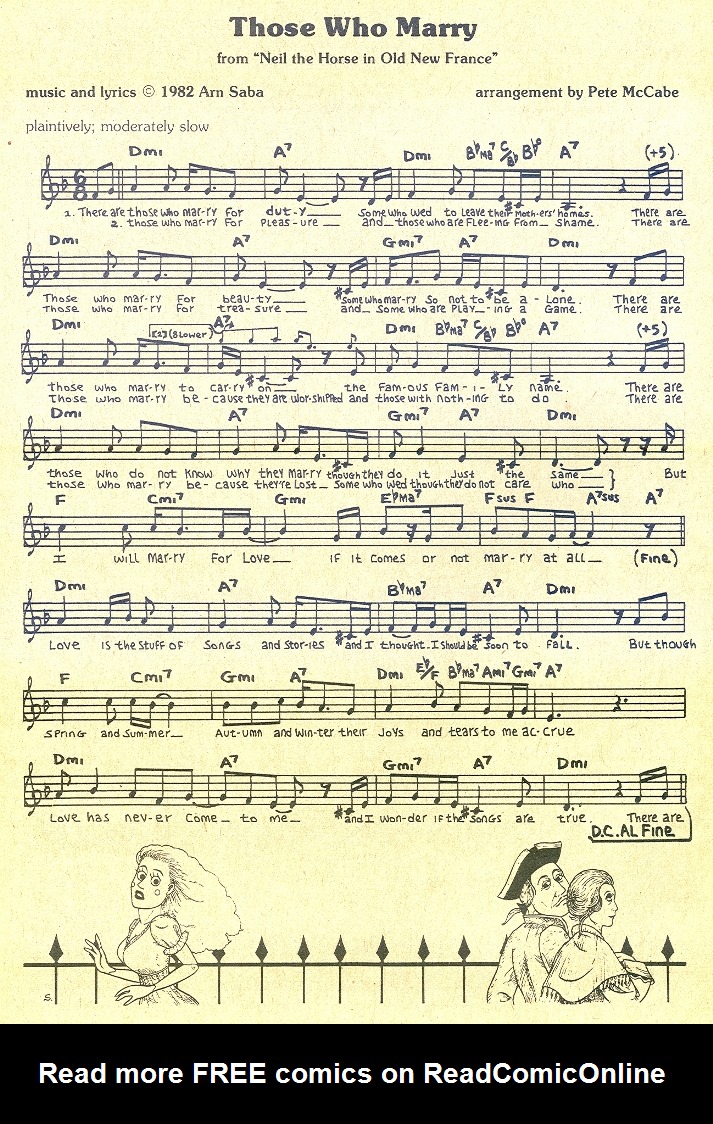 Those Who Marry
from “Neil the Horse in Old New France”
music and lyrics © 1982 Arn Saba
arrangement by Pete McCabe
plaintively; moderately slow
Dmi A7 Dmi B♭ma7 C/B♭ B♭° A7 (+5)
6 8
1. There are those who mar-ry for duty___ Some who wed to leave their moth-ers' homes. There are
2. those who mar-ry for Pleas-ure___ and_ those who are flee-ing from_ shame. There are
Dmi A7 Gmi7 A7 Dmi
Those who mar-ry for beau-ty___ some who mar-ry so not to be a-lone. There are
Those who mar-ry for trea-sure___ and_ some who are play_-ing a game. There are
Dmi [2] (slower) A7 Dmi B♭ma7 C/B♭ B♭° A7 (+5)
those who mar-ry to car-ry on___ the fam-ous fam-i-ly name. There are
Those who mar-ry be-cause they are wor-shipped and those with noth-ing to do. There are
Dmi A7 Gmi7 A7 Dmi
those who do not know why they marry though they do it just the same___ But
those who mar-ry be-cause they're lost_ some who wed though they do not care who___
F Cmi7 Gmi E♭ma7 Fsus F A7sus A7
I will mar-ry for love___ if it comes or not mar-ry at all__ (Fine)
Dmi A7 B♭ma7 A7 Dmi
Love is the stuff of songs and stor-ies and I thought I should be soon to fall. But though
F Cmi7 Gmi A7 Dmi E♭/F B♭ma7 Ami7 Gmi7 A7
spring and sum-mer__ Aut-umn and win-ter their joys and tears to me ac-crue
Dmi A7 Gmi7 A7 Dmi
Love has nev-er come_ to me__ and I won-der if the songs are true. There are
D.C. AL Fine
S.
Read more FREE comics on ReadComicOnline